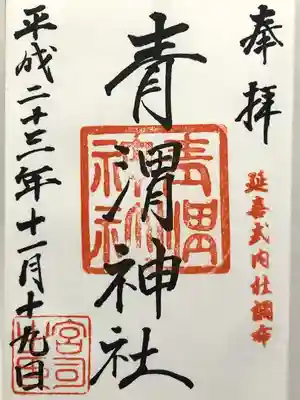 奉拝
延喜式内社調布
青渭神社
平成二十三年十一月十九日
宮司